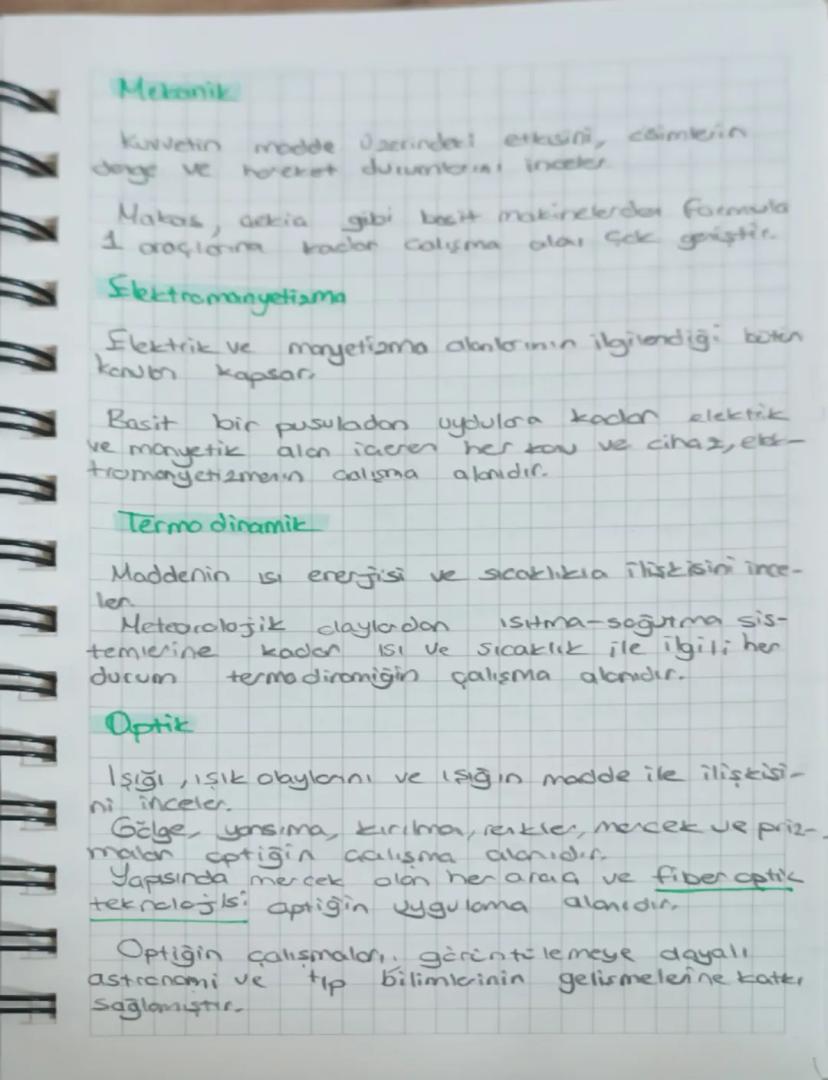 Mekanik
Kuvvetin madde üzerindeki etkisini, cisimlerin
denge ve hareket durumlarını inceler
Makas, çekiç gibi basit makinelerden Formula
1 araçlarına kadar çalışma alanı çok geniştir.
Elektromanyetizma
Elektrik ve manyetizma alanlarının ilgilendiği bütün
konuları kapsar.
Basit bir pusuladan uydulara kadar elektrik
ve manyetik alan içeren her konu ve cihaz, elek-
tromanyetizmenin çalışma alanıdır.
Termodinamik
Maddenin ısı enerjisi ve sıcaklıkla ilişkisini ince-
ler.
Meteorolojik olaylardan ısıtma-soğutma sis-
temlerine kadar ısı ve sıcaklık ile ilgili her
durum termodinamiğin çalışma alanıdır.
Optik
Işığı, ışık olaylarını ve ışığın madde ile ilişkisi-
ni inceler.
Gölge, yansıma, kırılma, renkler, mercek ve priz-
maları optiğin çalışma alanıdır.
Yapısında mercek olan her araç ve fiber optik
teknolojisi optiğin uygulama alanıdır.
Optiğin çalışmaları, görüntülemeye dayalı
astronomi ve tıp bilimlerinin gelişmelerine katkı
sağlamıştır.